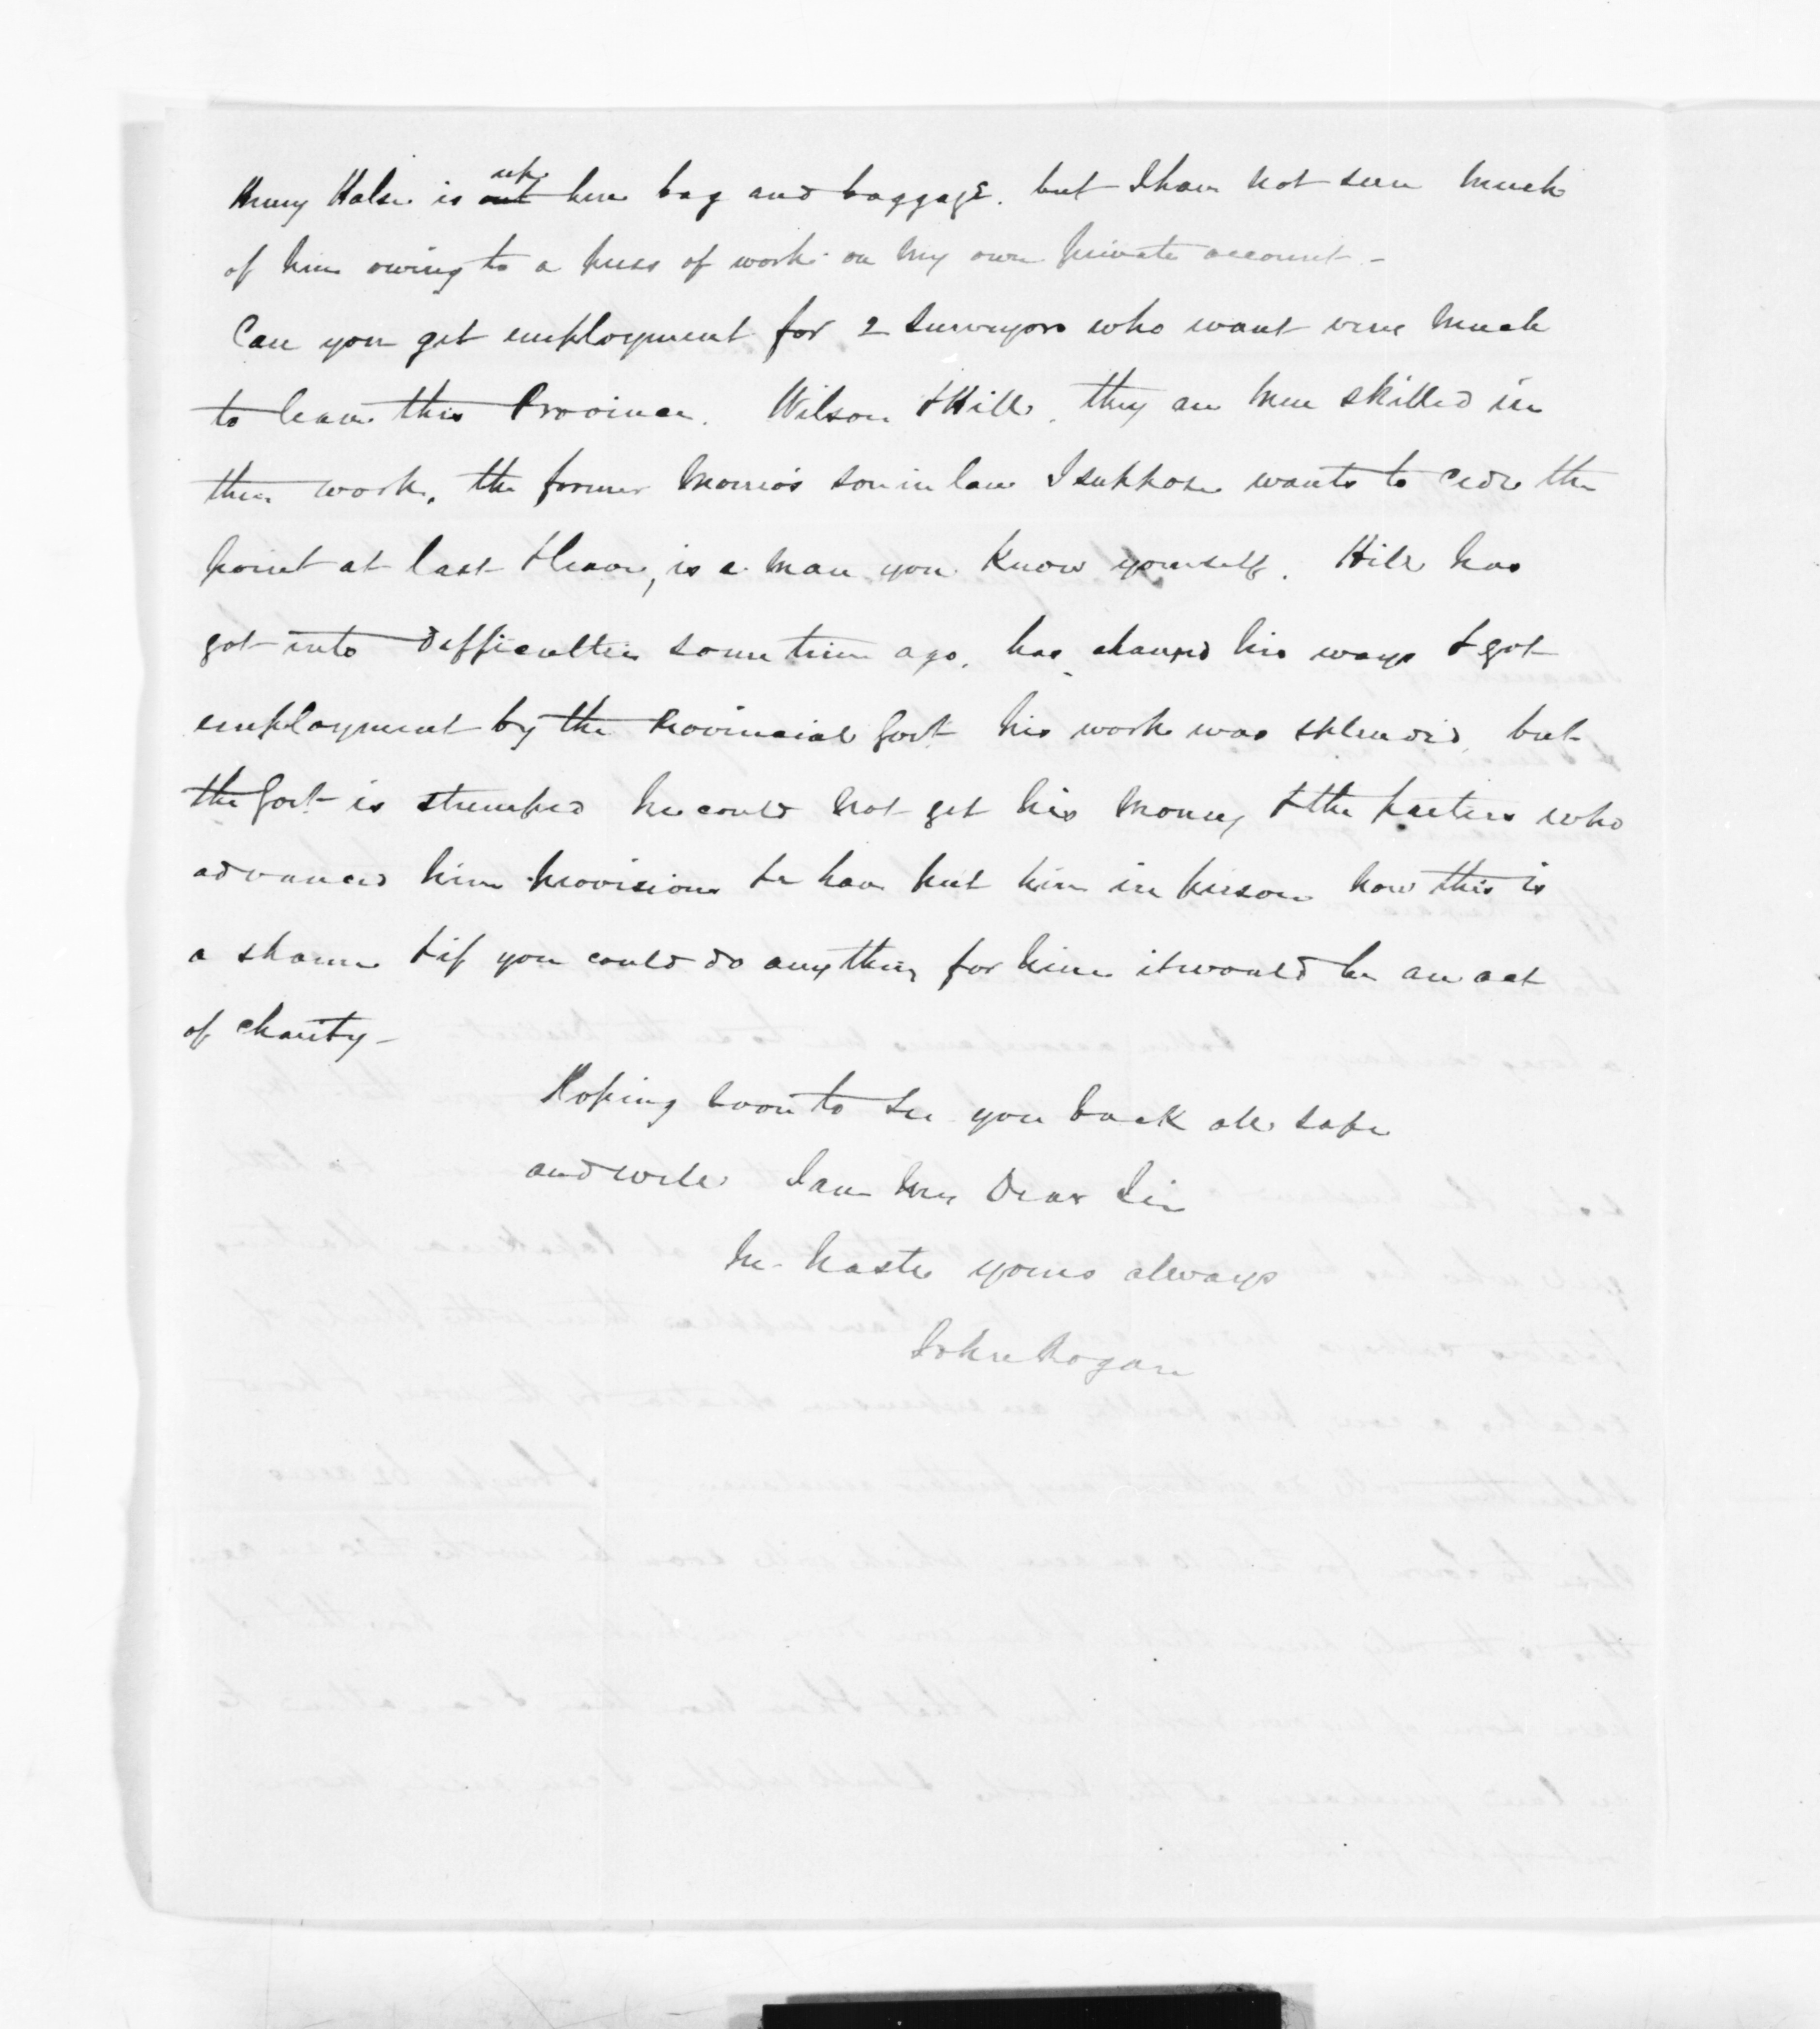 Henry Halse is out up here bag and baggage. but I have not seen much
of him owing to a press of work on my own private account. -
Can you get employment for 2 Surveyors who want very much
to leave this Province. Wilson & Hill. they are men skilled in
their work, the former Morris's son in law I suppose wants to the
point at last & leave, is a man you know yourself. Hill has
got into difficulties some time ago, has changed his ways & got
employment by the Provincial Govt his work was splendid, but
the Govt is stumped he could not get his money & the parties who
advanced him provisions &c have put him in prison now this is
a shame & if you could do anything for him it would be an act
of charity -
Hoping soon to see you back all safe
and well I am My Dear Sir
In haste yours always
John Rogan